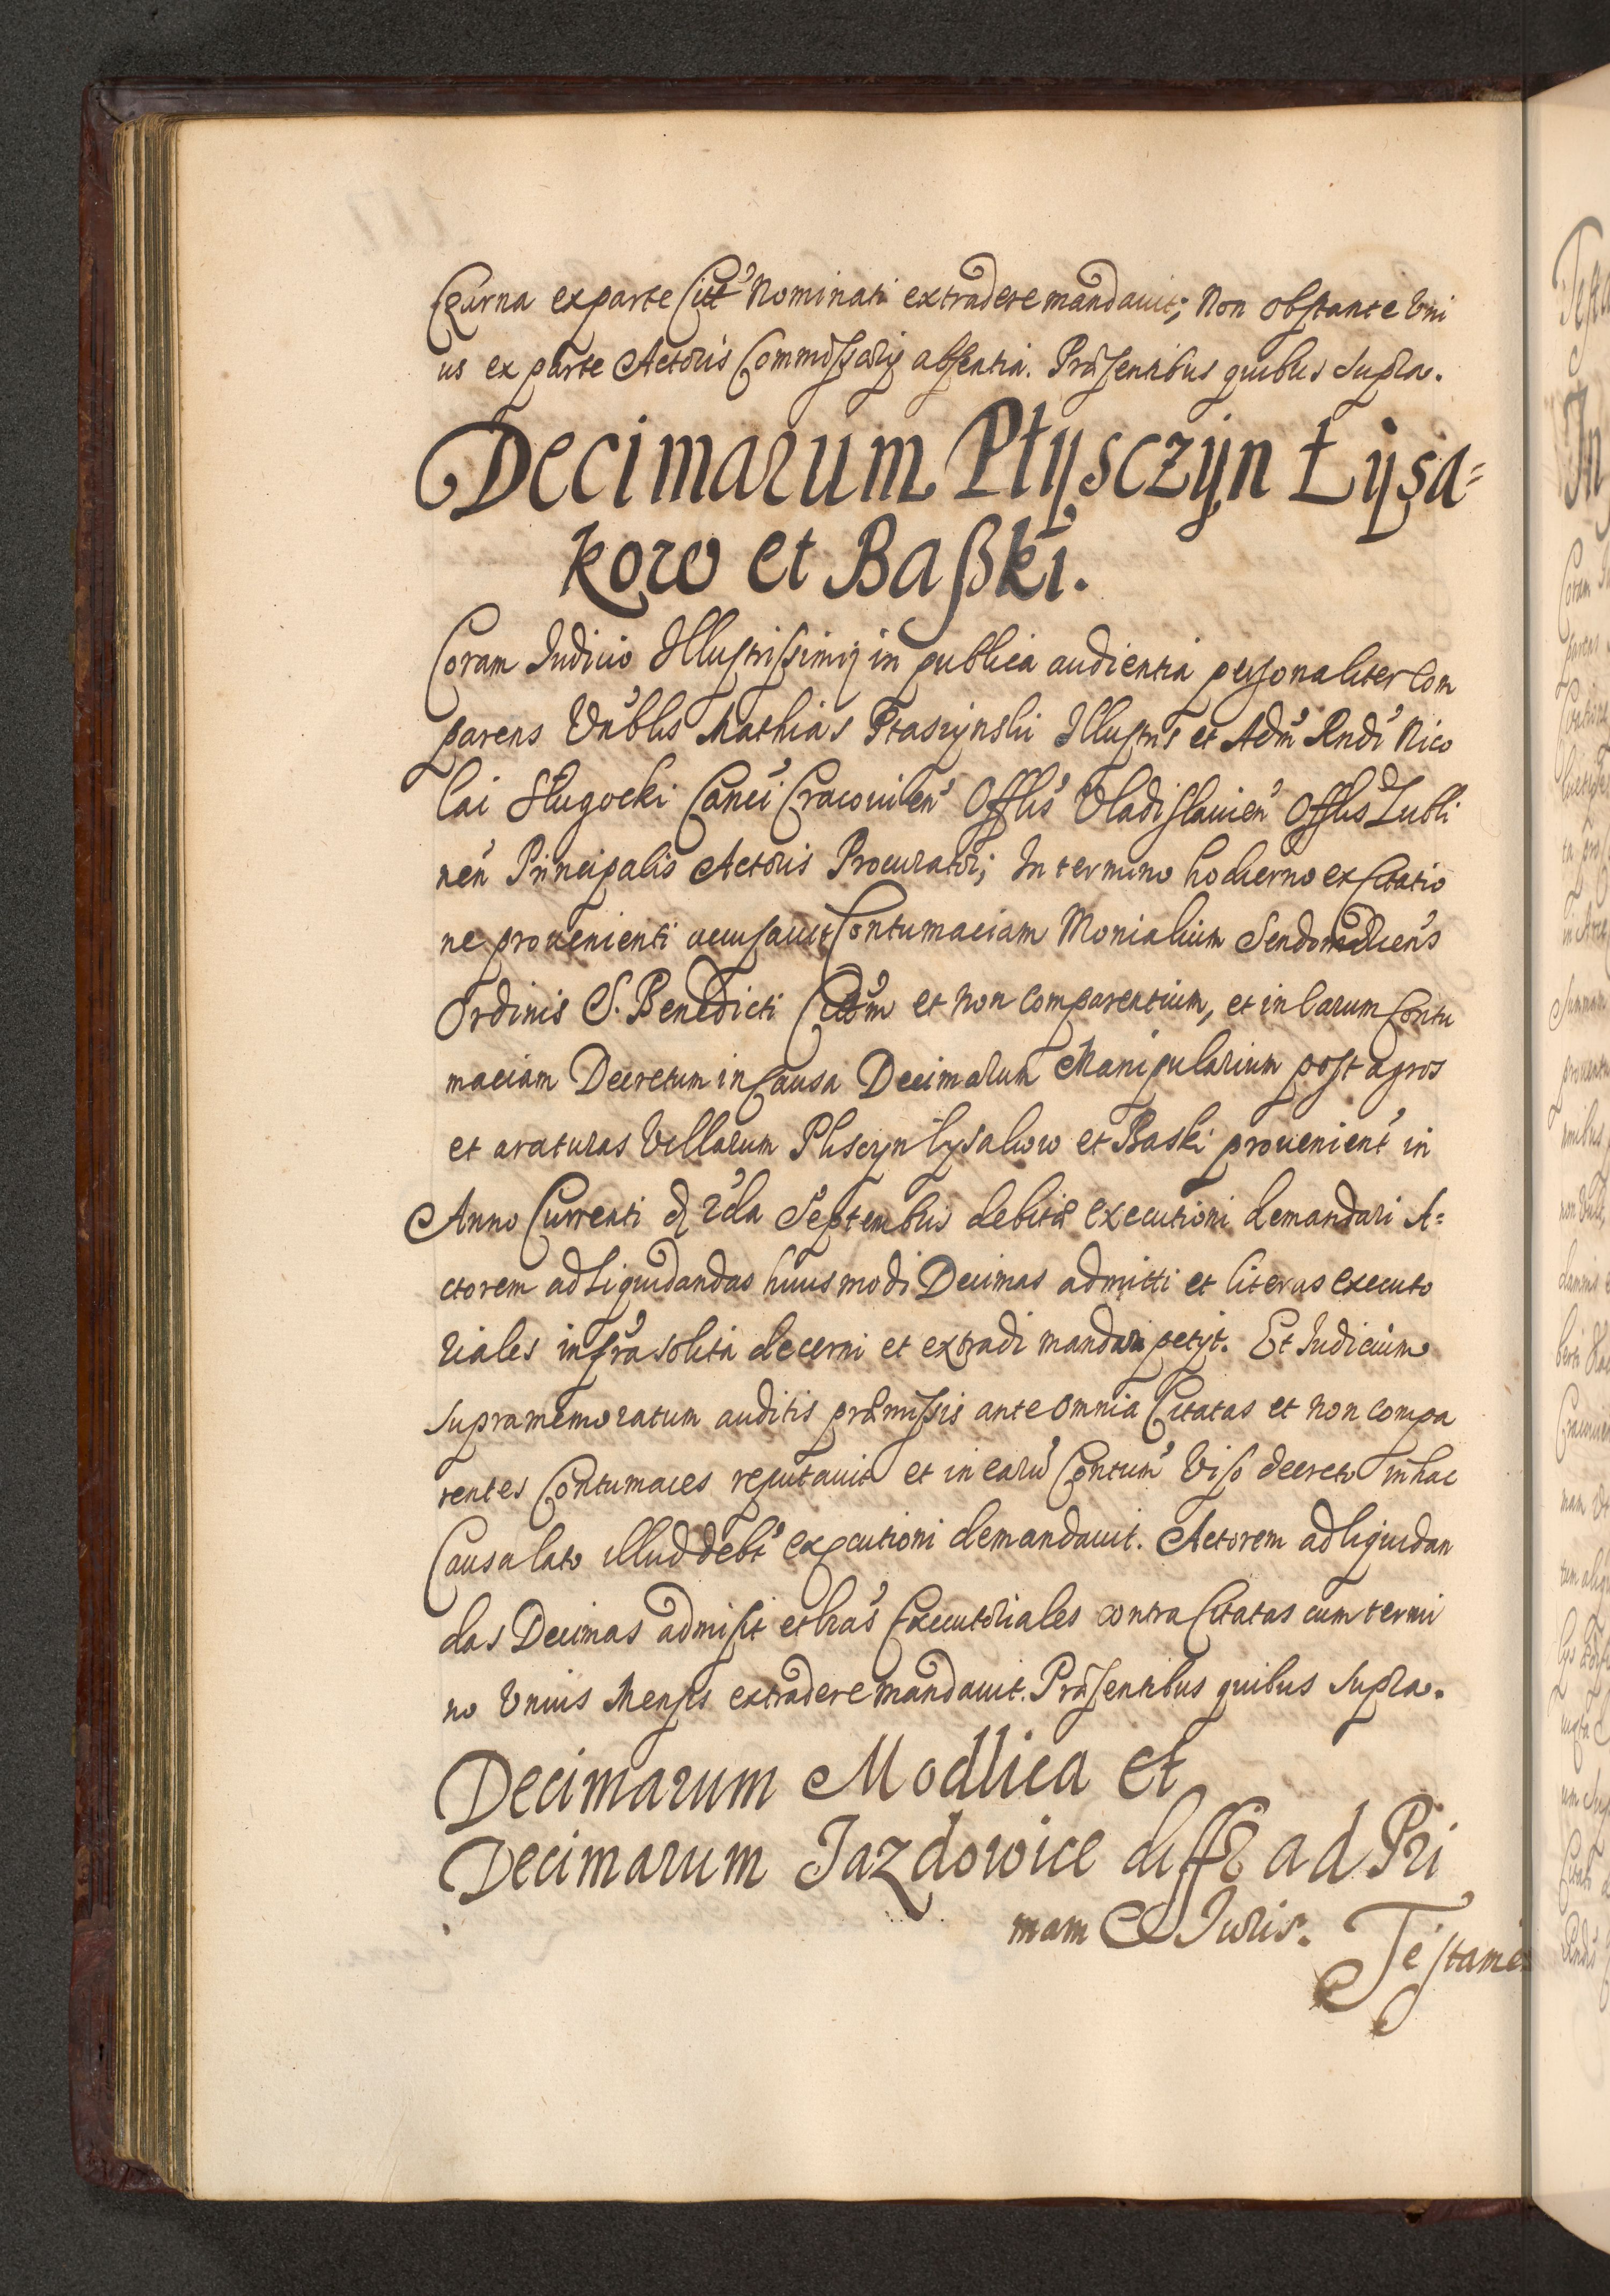 Czarna ex parte Citt' Nominati extradere mandauit; Non obstante Vni
us ex parte Actoris Commissarij absentia. Præsentibus quibus supra.
Decimarum Płysczÿn Łÿsa=
kow et Baßki.
Coram Iudicio Illustrissimi in publica audientia personaliter Com
parens Vnblis Mathias Ptaszynski Illustris et Adm Rndi Nico
lai Sługocki Canci Cracouien' Offlis Vladislauien' Offlis Lubli
nen' Principalis Actoris Procurator; In termino hodierno ex Citatio
ne prouenienti accusauit Contumaciam Monialium Sendomiriens
Ordinis S. Benedicti Citm et non Comparentium, et in earum Contu
maciam Decretum in Causa Decimarum Manipularium post agros
et araturas Villarum Pliscyn Lysakow et Baski prouenient' in
Anno Currenti 2da Septembris debitæ executioni demandari A=
ctorem ad Liquidandas huiusmodi Decimas admitti et literas executo
riales in fra solita decerni et extradi mandari petijt. Et Iudicium
supramemoratum auditis præmissis ante omnia Citatas et non compa
rentes Contumaces reputauit et in earu' Contum' Viso decreto in hac
Causa lato illud deb' executioni demandauit. Actorem ad liquidan
das Decimas admisit et lras Executoriales contra Citatas cum termi
no Vnius Mensis extradere mandauit. Præsentibus quibus supra.
Decimarum Modlica et
Decimarum Jazdowice diffr ad Pri
mam Iuris.
Testame